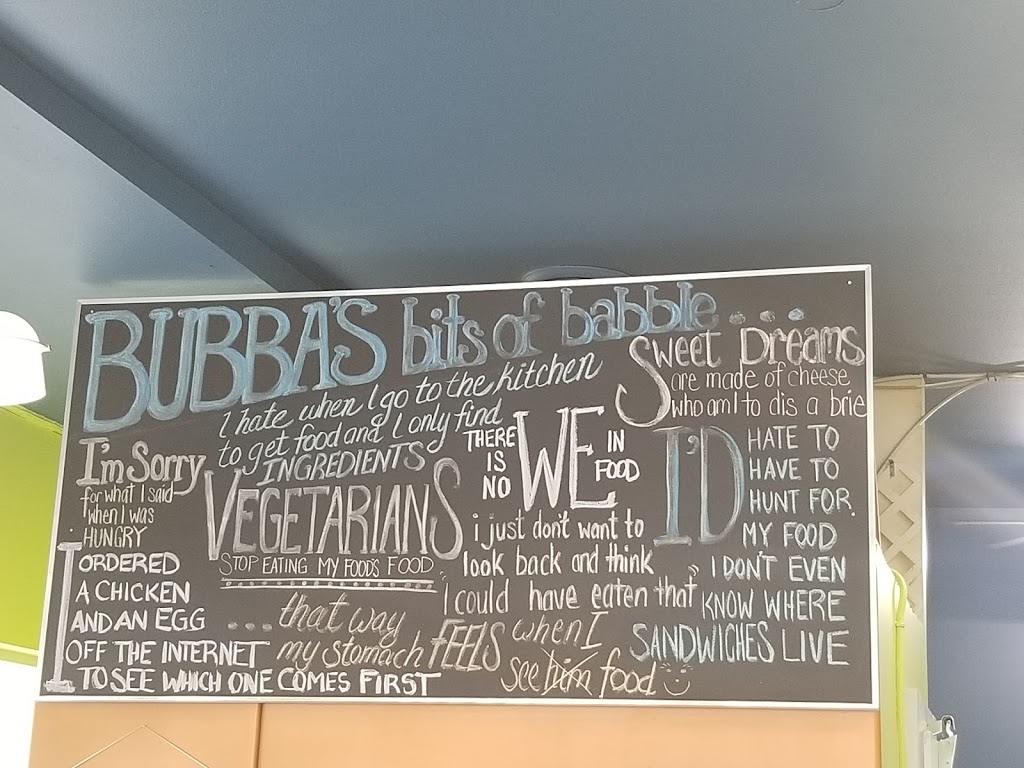 BUBBA'S bits of babble....
I hate when I go to the kitchen
to get food and I only find
INGREDIENTS
Sweet Dreams
are made of cheese
who am I to dis a brie
I'm Sorry
for what I said
when I was
HUNGRY
VEGETARIANS
STOP EATING MY FOODS FOOD
THERE
IS
NO
WE
IN
FOOD
I'D
HATE TO
HAVE TO
HUNT FOR
MY FOOD
I DON'T EVEN
KNOW WHERE
SANDWICHES LIVE
i just don't want to
look back and think
"I could have eaten that"
I ORDERED
A CHICKEN
AND AN EGG
OFF THE INTERNET
TO SEE WHICH ONE COMES FIRST
... that way
my stomach FEELS when I
see him food